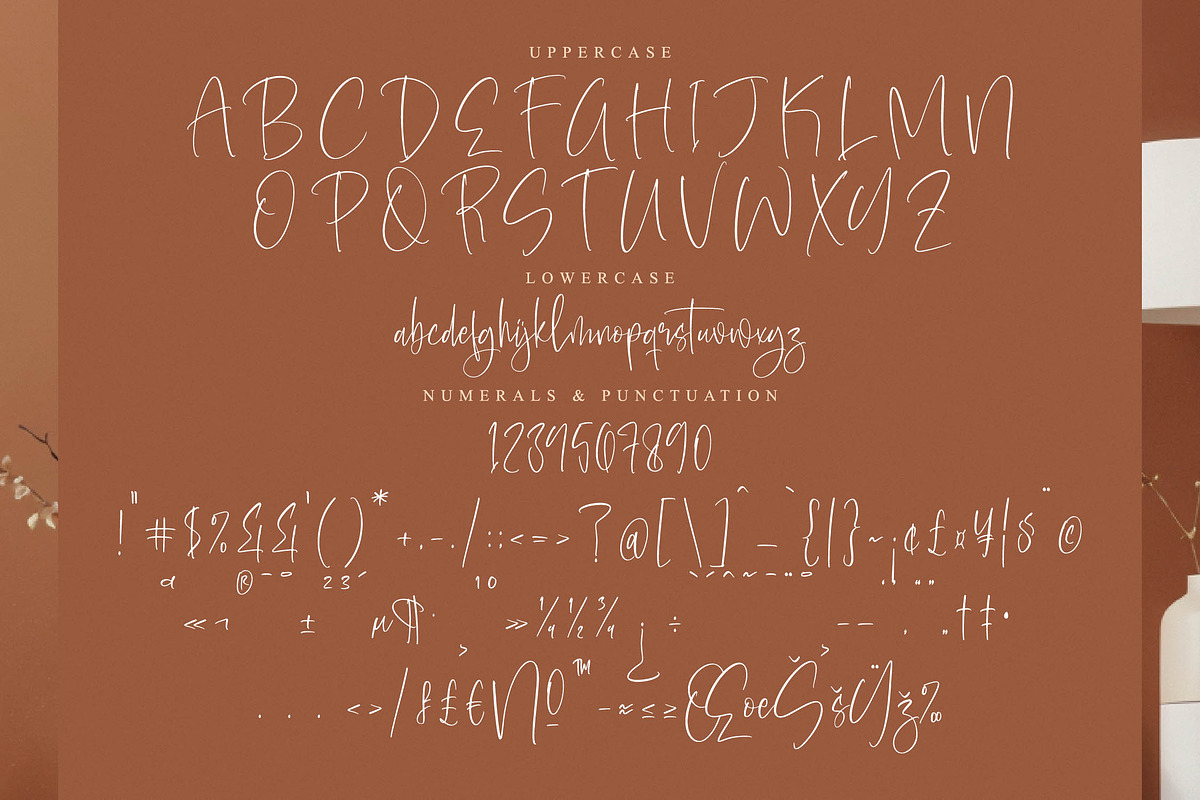 UPPERCASE
ABCDEFGHIJKLMN
OPQRSTUVWXYZ
LOWERCASE
abcdefghijklmnopqrstuvwxyz
NUMERALS & PUNCTUATION
1234567890
!"#$%&&'()*+,-./:;<=>?@[\]^_`{|}~¡¢£¤¥¦§¨©
ª ®¯° 23´ 10
«¬ ± µ¶· »¼½¾ ¿ ÷ –— ‚ „†‡•
... ‹›⁄ƒ£€№™ −≈≤≥ŒœŠšŸž‰